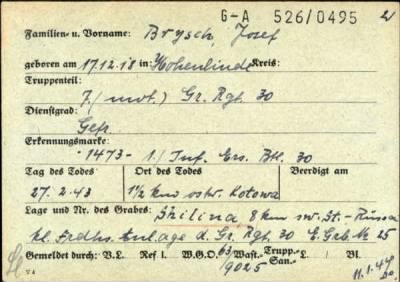 G-A 526/0495
Familien- u. Vorname: Brysch, Josef
geboren am 17.12.18 in: Hohenlinde Kreis:
Truppenteil:
7./(mot.) Gr. Rgt. 30
Dienstgrad:
Gefr.
Erkennungsmarke:
-1473- 1./Inf. Ers. Btl. 30
Tag des Todes Ort des Todes Beerdigt am
27.2.43 1½ km ostw. Kotowa
Lage und Nr. des Grabes: Shilina 8 km sw. St.-Russa
kl. Frdhs. Anlage d. Gr. Rgt. 30 E. Grb. Nr 25
Gemeldet durch: V.L. Ref I. W.G.O. 63/9025 Wast.- Trupp.- San.- L. Bl.
V 4 11.1.44